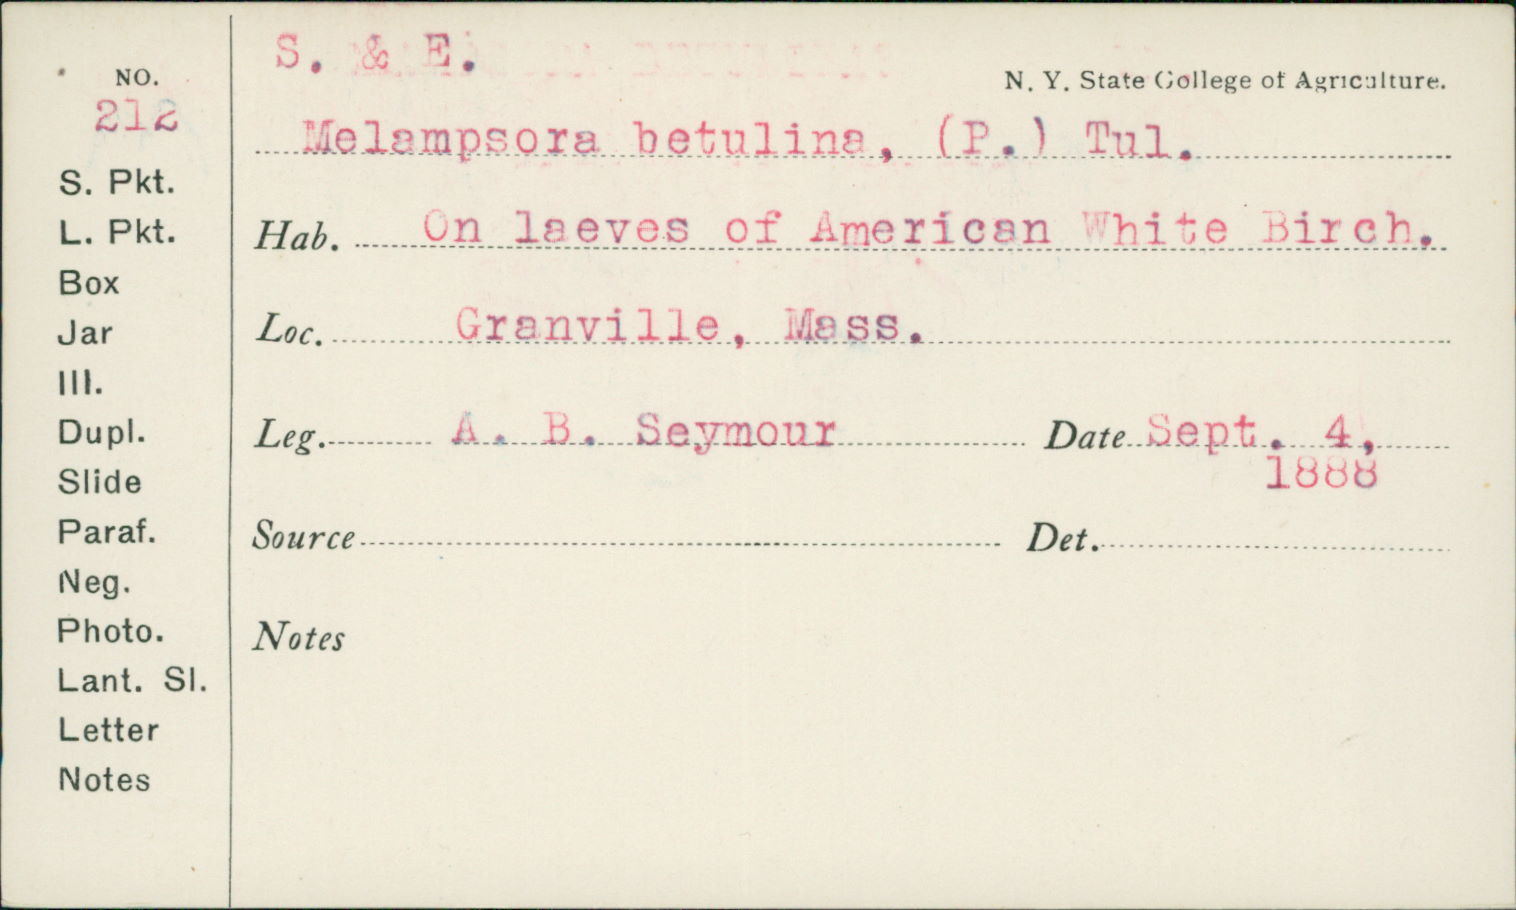 S. & E.
N. Y. State College of Agriculture.
NO.
212
Melampsora betulina, (P.) Tul.
S. Pkt.
L. Pkt.
Box
Jar
Ill.
Dupl.
Slide
Paraf.
Neg.
Photo.
Lant. Sl.
Letter
Notes
Hab. On laeves of American White Birch.
Loc. Granville, Mass.
Leg. A. B. Seymour Date Sept. 4,
1888
Source Det.
Notes